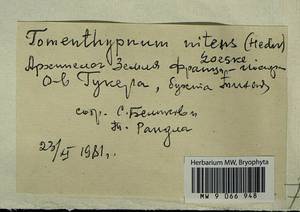 Tomenthypnum nitens (Hedw.)
Loeske
Архипелаг Земля Франца-Иосифа
О-в Гукера, бухта Тихая
собр. С. Беликович
Т. Рандла
23/ 1981 г.
Herbarium MW, Bryophyta
MW 9 066 948